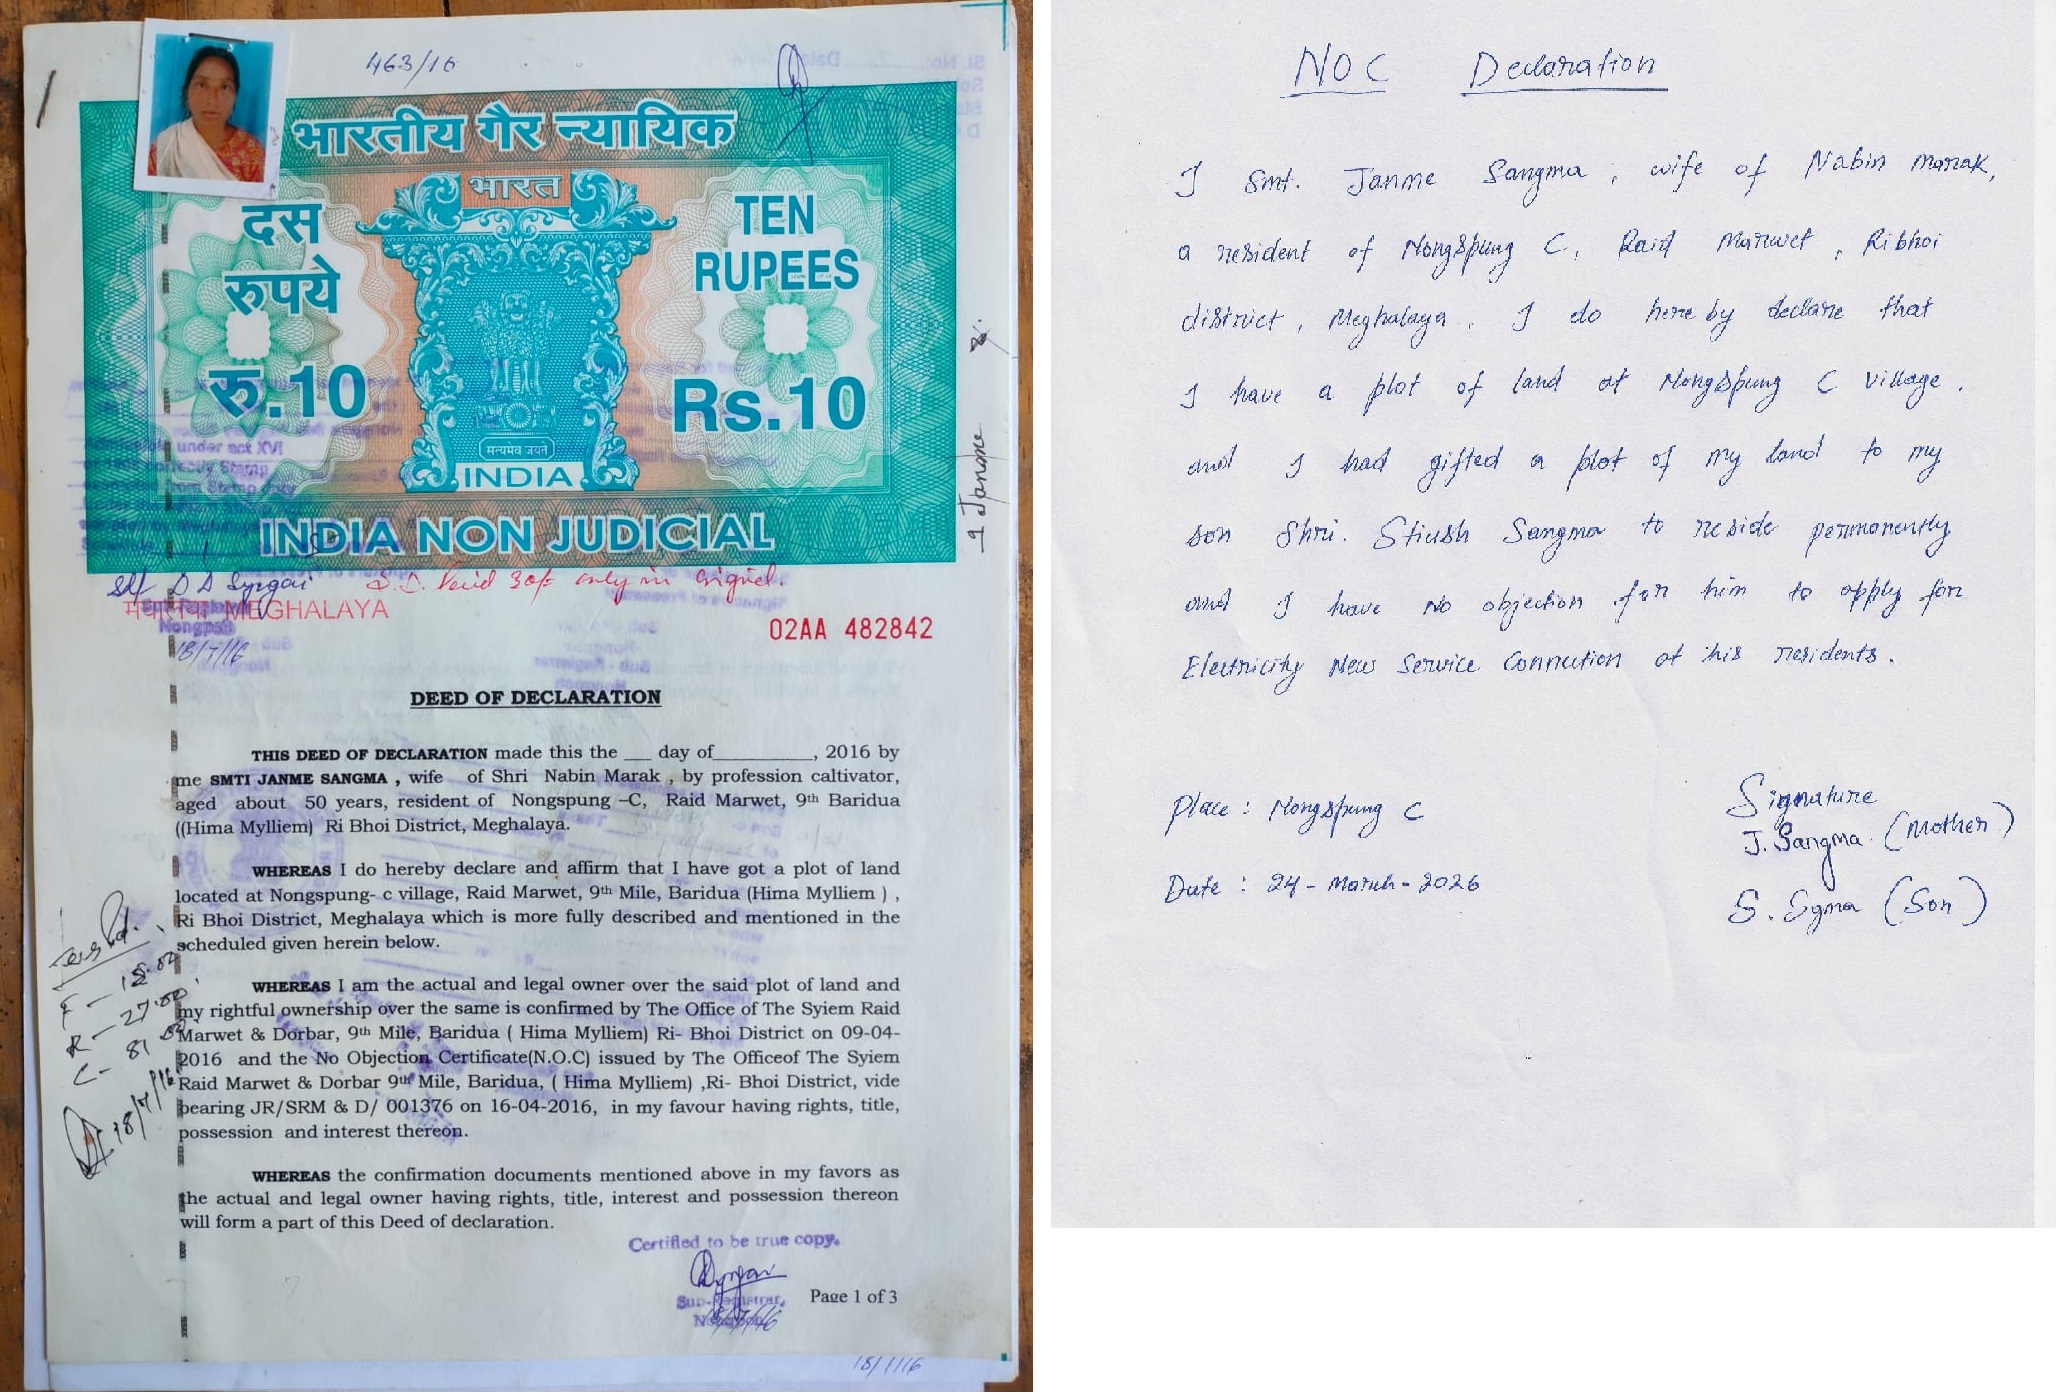 463/16
भारतीय गैर न्यायिक
भारत
दस
रुपये
रु.10
TEN
RUPEES
Rs.10
सत्यमेव जयते
INDIA
INDIA NON JUDICIAL
Janme
only in
MEGHALAYA
02AA 482842
18/7/16
DEED OF DECLARATION
THIS DEED OF DECLARATION made this the ___ day of__________, 2016 by
me SMTI JANME SANGMA , wife of Shri Nabin Marak , by profession caltivator,
aged about 50 years, resident of Nongspung –C, Raid Marwet, 9th Baridua
((Hima Mylliem) Ri Bhoi District, Meghalaya.
WHEREAS I do hereby declare and affirm that I have got a plot of land
located at Nongspung- c village, Raid Marwet, 9th Mile, Baridua (Hima Mylliem ) ,
Ri Bhoi District, Meghalaya which is more fully described and mentioned in the
scheduled given herein below.
WHEREAS I am the actual and legal owner over the said plot of land and
my rightful ownership over the same is confirmed by The Office of The Syiem Raid
Marwet & Dorbar, 9th Mile, Baridua ( Hima Mylliem) Ri- Bhoi District on 09-04-
2016 and the No Objection Certificate(N.O.C) issued by The Officeof The Syiem
Raid Marwet & Dorbar 9th Mile, Baridua, ( Hima Mylliem) ,Ri- Bhoi District, vide
bearing JR/SRM & D/ 001376 on 16-04-2016, in my favour having rights, title,
possession and interest thereon.
WHEREAS the confirmation documents mentioned above in my favors as
the actual and legal owner having rights, title, interest and possession thereon
will form a part of this Deed of declaration.
18/7/16
Certified to be true copy.
Sub-Registrar,
Page 1 of 3
NOC Declaration
I Smt. Janme Sangma, wife of Nabin Marak,
a resident of Nongspung C, Raid Marwet, Ribhoi
district, Meghalaya. I do here by declare that
I have a plot of land at Nongspung C village.
and I had gifted a plot of my land to my
son Shri. Stiush Sangma to reside permanently
and I have no objection for him to apply for
Electricity New Service Connection at his residents.
Place : Nongspung C
Date : 24-March-2026
Signature
J. Sangma (Mother)
S. Sgma (Son)